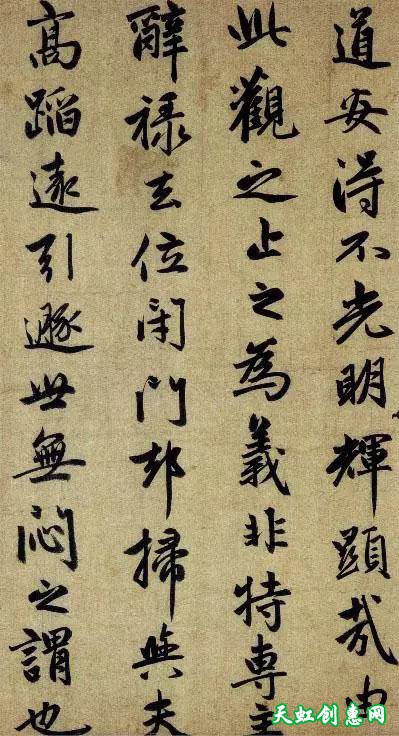 道安得不光明輝顯哉由
此觀之止之為義非特専主
辭禄去位閉門却掃與夫
高蹈遠引遯世無悶之謂也
天虹创惠网